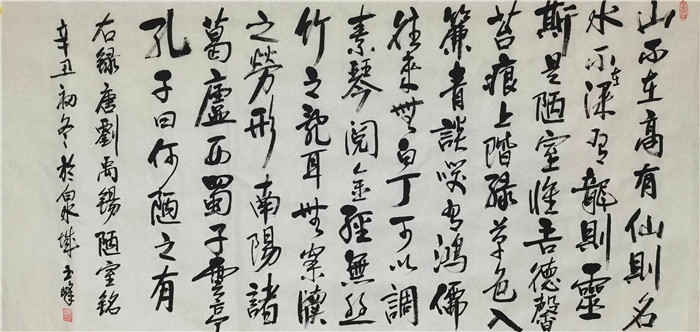 山不在高有仙則名
水不在深有龍則靈
斯是陋室惟吾德馨
苔痕上階緑草色入
簾青談咲有鴻儒
往来無白丁可以調
素琴閲金經無絲
竹之亂耳無案牘
之勞形南陽諸
葛廬西蜀子雲亭
孔子曰何陋之有
右録唐劉禹錫陋室銘
辛丑初冬於泉城玉峰